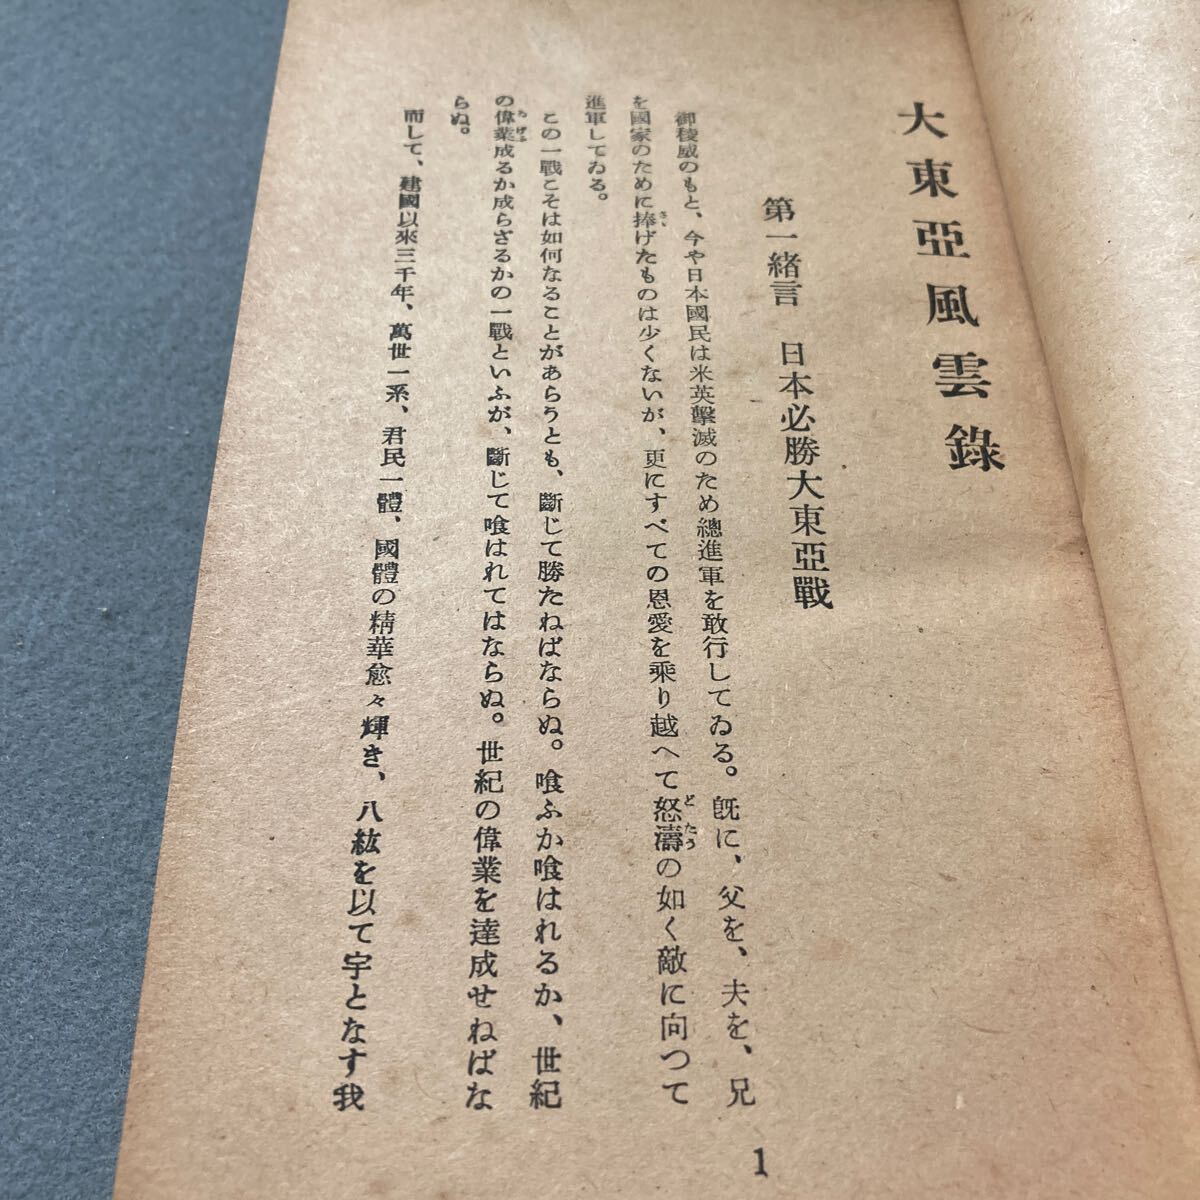 大東亞風雲錄
第一緒言　日本必勝大東亞戰
御稜威のもと、今や日本國民は米英擊滅のため總進軍を敢行してゐる。既に、父を、夫を、兄
を國家のために捧げたものは少くないが、更にすべての恩愛を乘り越へて怒濤の如く敵に向つて
進軍してゐる。
この一戰こそは如何なることがあらうとも、斷じて勝たねばならぬ。喰ふか喰はれるか、世紀
の偉業成るか成らざるかの一戰といふが、斷じて喰はれてはならぬ。世紀の偉業を達成せねばな
らぬ。
而して、建國以來三千年、萬世一系、君民一體、國體の精華愈々輝き、八紘を以て宇となす我
1